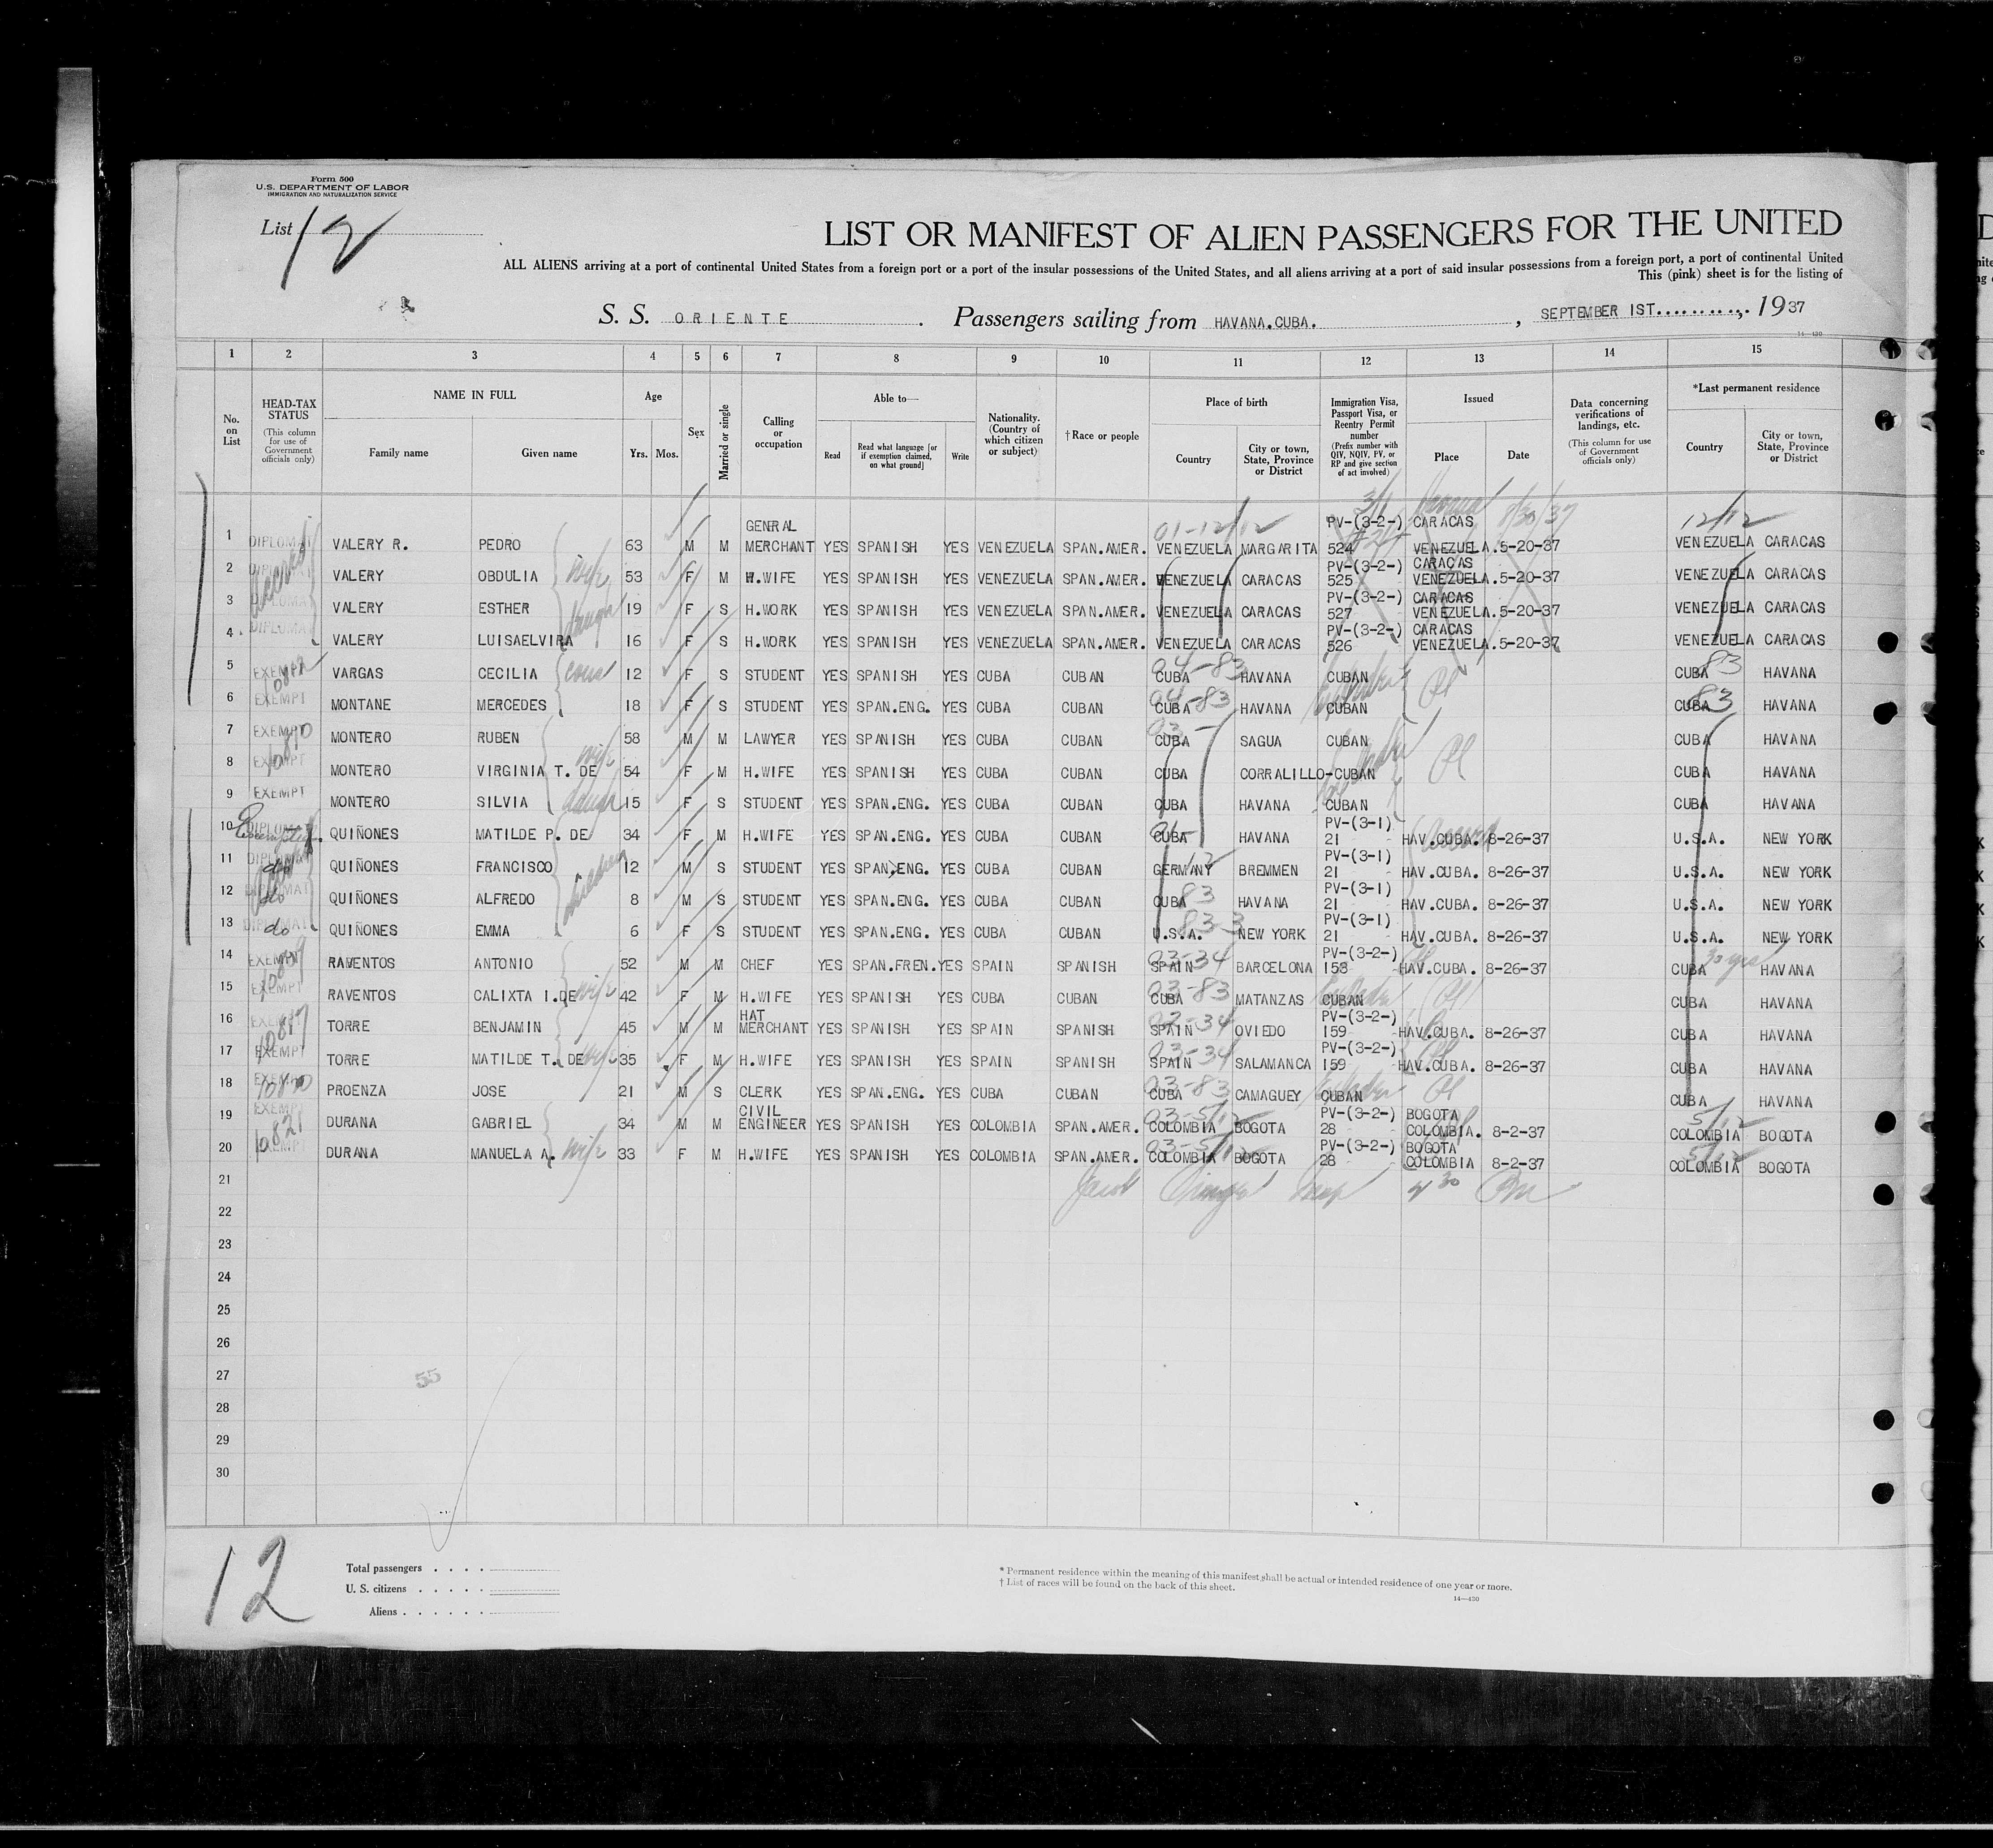 Form 500
U.S. DEPARTMENT OF LABOR
IMMIGRATION AND NATURALIZATION SERVICE
List 12
LIST OR MANIFEST OF ALIEN PASSENGERS FOR THE UNITED
ALL ALIENS arriving at a port of continental United States from a foreign port or a port of the insular possessions of the United States, and all aliens arriving at a port of said insular possessions from a foreign port, a port of continental United
This (pink) sheet is for the listing of
S. S. ORIENTE. Passengers sailing from HAVANA.CUBA. , SEPTEMBER 1ST.........., 1937
14—430
1 2 3 4 5 6 7 8 9 10 11 12 13 14 15
No. on List
HEAD-TAX STATUS (This column for use of Government officials only)
NAME IN FULL Family name Given name
Age Yrs. Mos.
Sex
Married or single
Calling or occupation
Able to— Read Read what language [or if exemption claimed, on what ground] Write
Nationality. (Country of which citizen or subject)
†Race or people
Place of birth Country City or town, State, Province or District
Immigration Visa, Passport Visa, or Reentry Permit number (Prefix number with QIV, NQIV, FV, or RP and give section of act involved)
Issued Place Date
Data concerning verifications of landings, etc. (This column for use of Government officials only)
*Last permanent residence Country City or town, State, Province or District
3/1 8/30/37
01-12/12 12/12
1 DIPLOMAT VALERY R. PEDRO 63 M M GENERAL MERCHANT YES SPANISH YES VENEZUELA SPAN.AMER. VENEZUELA MARGARITA PV-(3-2-) 524 CARACAS VENEZUELA. 5-20-37 VENEZUELA CARACAS
2 DIPLOMAT VALERY OBDULIA wife 53 F M H.WIFE YES SPANISH YES VENEZUELA SPAN.AMER. VENEZUELA CARACAS PV-(3-2-) 525 CARACAS VENEZUELA. 5-20-37 VENEZUELA CARACAS
3 DIPLOMAT VALERY ESTHER 19 F S H.WORK YES SPANISH YES VENEZUELA SPAN.AMER. VENEZUELA CARACAS PV-(3-2-) 527 CARACAS VENEZUELA. 5-20-37 VENEZUELA CARACAS
4 DIPLOMAT VALERY LUISAELVIRA 16 F S H.WORK YES SPANISH YES VENEZUELA SPAN.AMER. VENEZUELA CARACAS PV-(3-2-) 526 CARACAS VENEZUELA. 5-20-37 VENEZUELA CARACAS
5 EXEMPT VARGAS CECILIA cous 12 F S STUDENT YES SPANISH YES CUBA CUBAN 04-83 CUBA HAVANA CUBAN CUBA 83 HAVANA
6 EXEMPT MONTANE MERCEDES 18 F S STUDENT YES SPAN.ENG. YES CUBA CUBAN 04-83 CUBA HAVANA CUBAN CUBA 83 HAVANA
7 EXEMPT MONTERO RUBEN 58 M M LAWYER YES SPANISH YES CUBA CUBAN CUBA SAGUA CUBAN CUBA HAVANA
8 EXEMPT MONTERO VIRGINIA T. DE wife 54 F M H.WIFE YES SPANISH YES CUBA CUBAN CUBA CORRALILLO-CUBAN CUBA HAVANA
9 EXEMPT MONTERO SILVIA 15 F S STUDENT YES SPAN.ENG. YES CUBA CUBAN CUBA HAVANA CUBAN CUBA HAVANA
10 DIPLOMAT QUIÑONES MATILDE P. DE 34 F M H.WIFE YES SPAN.ENG. YES CUBA CUBAN CUBA HAVANA PV-(3-1) 21 HAV.CUBA. 8-26-37 U.S.A. NEW YORK
11 DIPLOMAT do QUIÑONES FRANCISCO children 12 M S STUDENT YES SPAN.ENG. YES CUBA CUBAN GERMANY BREMMEN PV-(3-1) 21 HAV.CUBA. 8-26-37 U.S.A. NEW YORK
12 DIPLOMAT do QUIÑONES ALFREDO 8 M S STUDENT YES SPAN.ENG. YES CUBA CUBAN 83 CUBA HAVANA PV-(3-1) 21 HAV.CUBA. 8-26-37 U.S.A. NEW YORK
13 DIPLOMAT do QUIÑONES EMMA 6 F S STUDENT YES SPAN.ENG. YES CUBA CUBAN 83-3 U.S.A. NEW YORK PV-(3-1) 21 HAV.CUBA. 8-26-37 U.S.A. NEW YORK
14 EXEMPT RAVENTOS ANTONIO 52 M M CHEF YES SPAN.FREN. YES SPAIN SPANISH 03-34 SPAIN BARCELONA PV-(3-2-) 158 HAV.CUBA. 8-26-37 CUBA 30 yrs HAVANA
15 EXEMPT RAVENTOS CALIXTA I.DE wife 42 F M H.WIFE YES SPANISH YES CUBA CUBAN 03-83 CUBA MATANZAS CUBAN CUBA HAVANA
16 EXEMPT TORRE BENJAMIN 45 M M HAT MERCHANT YES SPANISH YES SPAIN SPANISH 03-34 SPAIN OVIEDO PV-(3-2-) 159 HAV.CUBA. 8-26-37 CUBA HAVANA
17 EXEMPT TORRE MATILDE T. DE wife 35 F M H.WIFE YES SPANISH YES SPAIN SPANISH 03-34 SPAIN SALAMANCA PV-(3-2-) 159 HAV.CUBA. 8-26-37 CUBA HAVANA
18 EXEMPT PROENZA JOSE 21 M S CLERK YES SPAN.ENG. YES CUBA CUBAN 03-83 CUBA CAMAGUEY CUBAN CUBA HAVANA
19 EXEMPT DURANA GABRIEL 34 M M CIVIL ENGINEER YES SPANISH YES COLOMBIA SPAN.AMER. 03-5/12 COLOMBIA BOGOTA PV-(3-2-) 28 BOGOTA COLOMBIA. 8-2-37 5/12 COLOMBIA BOGOTA
20 EXEMPT 10821 DURANA MANUELA A. wife 33 F M H.WIFE YES SPANISH YES COLOMBIA SPAN.AMER. 03-5/12 COLOMBIA BOGOTA PV-(3-2-) 28 BOGOTA COLOMBIA 8-2-37 5/12 COLOMBIA BOGOTA
21 Jacob
22
23
24
25
26
27 55
28
29
30
12
Total passengers . . . .
U. S. citizens . . . . .
Aliens . . . . . .
* Permanent residence within the meaning of this manifest shall be actual or intended residence of one year or more.
† List of races will be found on the back of this sheet.
14—430